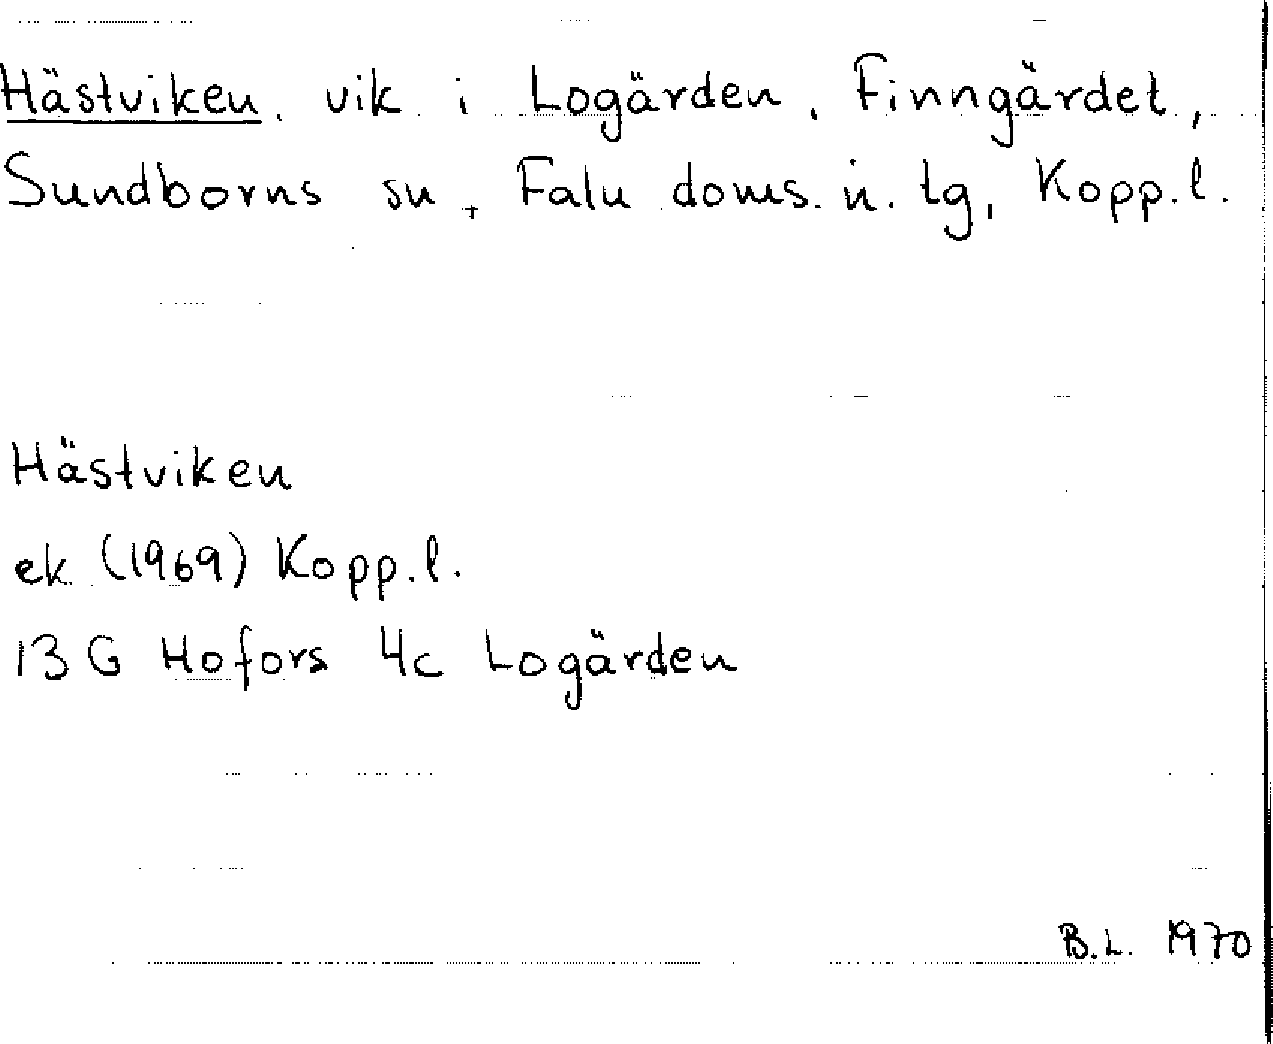 Hästviken, vik i Logärden, Finngärdet,
Sundborns sn, Falu doms. n. tg, Kopp.l.
Hästviken
ek (1969) Kopp.l.
13 G Hofors 4c Logärden
B.L. 1970